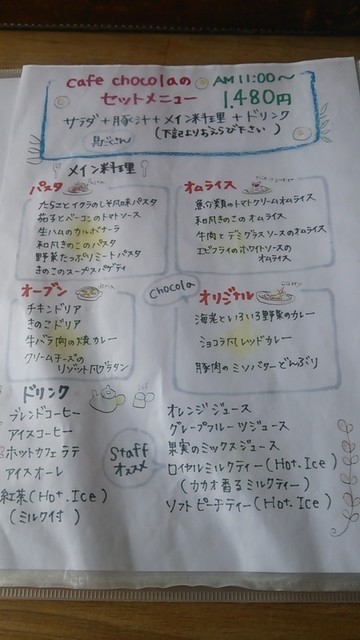 cafe chocolaの AM 11:00～
セットメニュー 1,480円
サラダ+豚汁+メイン料理+ドリンク
(下記よりおえらび下さい)
メイン料理
パスタ
たらことイクラのしそ風味パスタ
茄子とベーコンのトマトソース
生ハムのカルボナーラ
和風きのこのパスタ
野菜たっぷりミートパスタ
きのこのスープスパゲティ
オムライス
魚介類のトマトクリームオムライス
和風きのこのオムライス
牛肉とデミグラスソースのオムライス
エビフライのホワイトソースの
オムライス
オーブン
チキンドリア
きのこドリア
牛バラ肉の焼カレー
クリームチーズの
リゾット風グラタン
chocola
オリジナル
海老といろいろ野菜のカレー
ショコラ風レッドカレー
豚肉のミソバターどんぶり
ドリンク
ブレンドコーヒー
アイスコーヒー
ホットカフェラテ
アイスオーレ
紅茶(Hot.Ice)
(ミルク付)
Staff
オススメ
オレンジジュース
グレープフルーツジュース
果実のミックスジュース
ロイヤルミルクティー(Hot.Ice)
(カカオ香るミルクティー)
ソフトピーチティー(Hot.Ice)